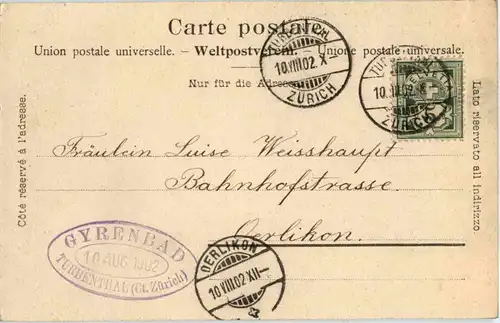 Carte postale.
Union postale universelle. – Weltpostverein. – Unione postale universale.
Nur für die Adresse.
TURBENTHAL
10.VIII.02.X–
ZÜRICH
10.VIII.02.X–
ZÜRICH
HELVETIA
Côté réservé à l'adresse.
Lato riservato all indirizzo
Fräulein Luise Weisshaupt
Bahnhofstrasse.
Oerlikon.
GYRENBAD
10 AUG 1902
TURBENTHAL (Ct. Zürich)
OERLIKON
10.VIII.02.XII–